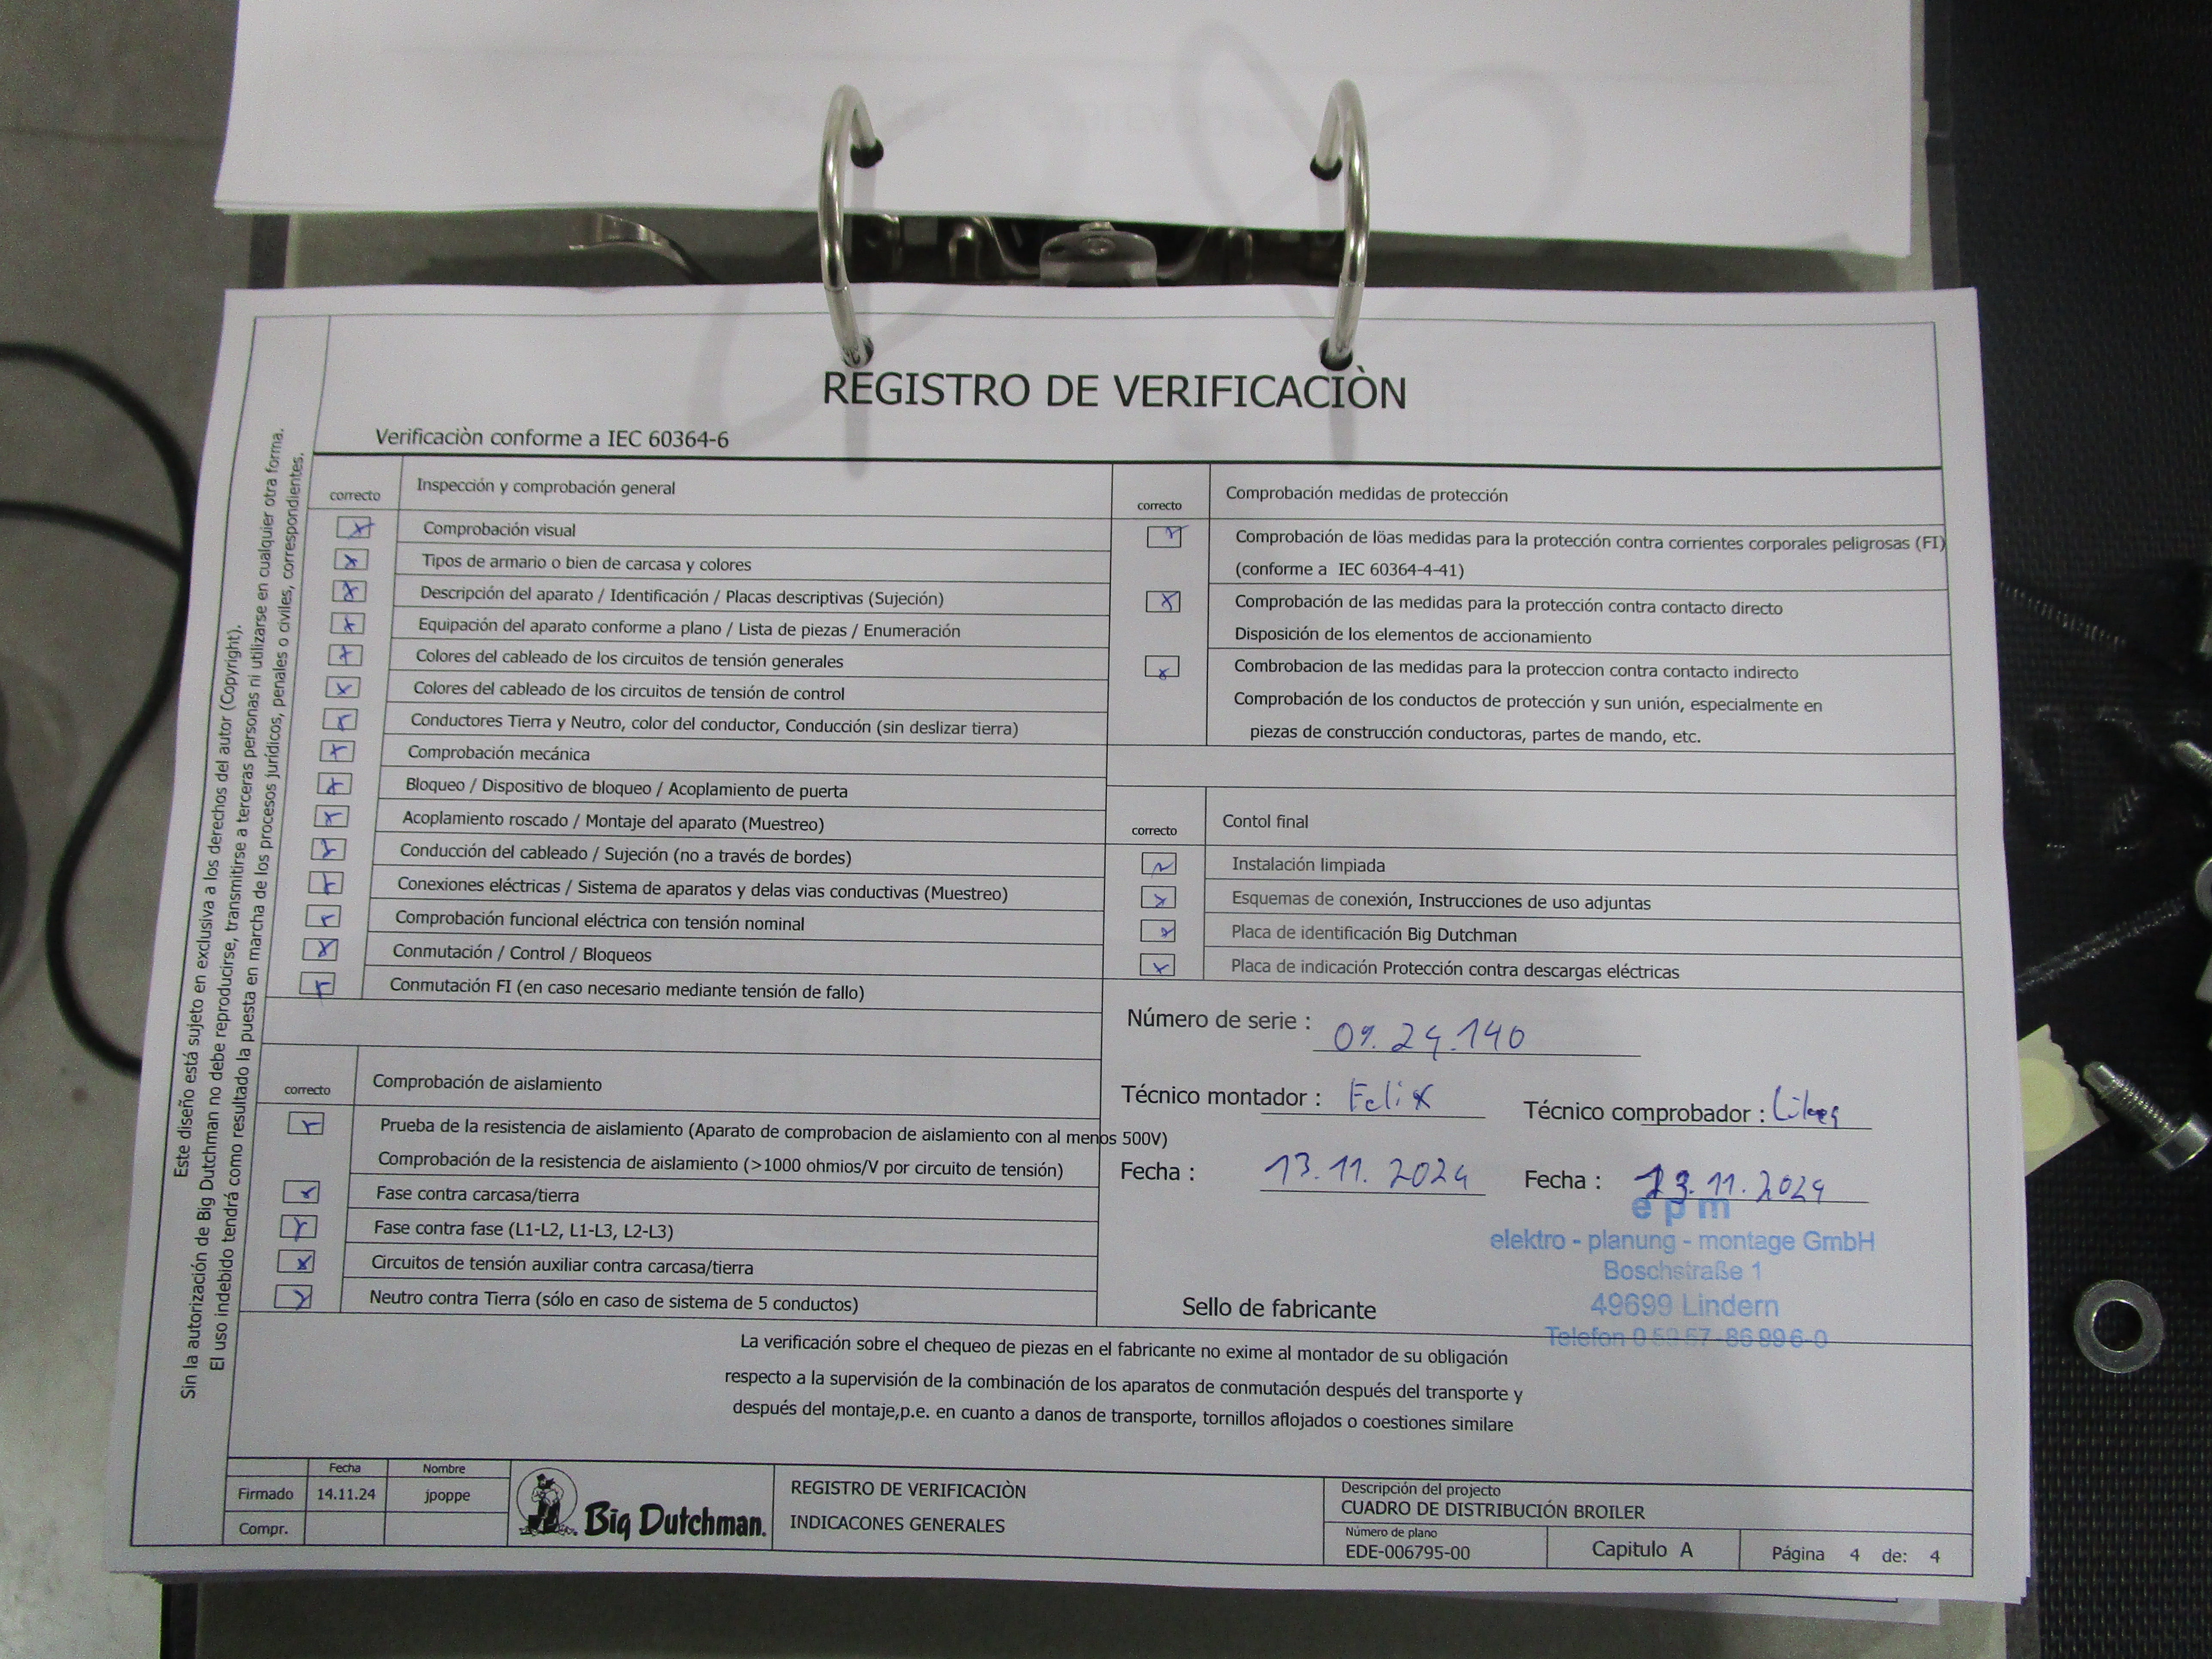 REGISTRO DE VERIFICACIÒN
Verificaciòn conforme a IEC 60364-6
correcto Inspección y comprobación general
Comprobación visual
Tipos de armario o bien de carcasa y colores
Descripción del aparato / Identificación / Placas descriptivas (Sujeción)
Equipación del aparato conforme a plano / Lista de piezas / Enumeración
Colores del cableado de los circuitos de tensión generales
Colores del cableado de los circuitos de tensión de control
Conductores Tierra y Neutro, color del conductor, Conducción (sin deslizar tierra)
Comprobación mecánica
Bloqueo / Dispositivo de bloqueo / Acoplamiento de puerta
Acoplamiento roscado / Montaje del aparato (Muestreo)
Conducción del cableado / Sujeción (no a través de bordes)
Conexiones eléctricas / Sistema de aparatos y delas vias conductivas (Muestreo)
Comprobación funcional eléctrica con tensión nominal
Conmutación / Control / Bloqueos
Conmutación FI (en caso necesario mediante tensión de fallo)
correcto Comprobación de aislamiento
Prueba de la resistencia de aislamiento (Aparato de comprobacion de aislamiento con al menos 500V)
Comprobación de la resistencia de aislamiento (>1000 ohmios/V por circuito de tensión)
Fase contra carcasa/tierra
Fase contra fase (L1-L2, L1-L3, L2-L3)
Circuitos de tensión auxiliar contra carcasa/tierra
Neutro contra Tierra (sólo en caso de sistema de 5 conductos)
correcto Comprobación medidas de protección
Comprobación de löas medidas para la protección contra corrientes corporales peligrosas (FI)
(conforme a IEC 60364-4-41)
Comprobación de las medidas para la protección contra contacto directo
Disposición de los elementos de accionamiento
Combrobacion de las medidas para la proteccion contra contacto indirecto
Comprobación de los conductos de protección y sun unión, especialmente en
piezas de construcción conductoras, partes de mando, etc.
correcto Contol final
Instalación limpiada
Esquemas de conexión, Instrucciones de uso adjuntas
Placa de identificación Big Dutchman
Placa de indicación Protección contra descargas eléctricas
Número de serie : 09.24.140
Técnico montador : Felix Técnico comprobador :
Fecha : 13.11.2024 Fecha : 13.11.2024
epm
elektro - planung - montage GmbH
Boschstraße 1
49699 Lindern
Telefon
Sello de fabricante
La verificación sobre el chequeo de piezas en el fabricante no exime al montador de su obligación
respecto a la supervisión de la combinación de los aparatos de conmutación después del transporte y
después del montaje,p.e. en cuanto a danos de transporte, tornillos aflojados o coestiones similare
Este diseño está sujeto en exclusiva a los derechos del autor (Copyright).
Sin la autorización de Big Dutchman no debe reproducirse, transmitirse a terceras personas ni utilizarse en cualquier otra forma.
El uso indebido tendrá como resultado la puesta en marcha de los procesos jurídicos, penales o civiles, correspondientes.
Fecha Nombre
Firmado 14.11.24 jpoppe
Compr.
Big Dutchman.
REGISTRO DE VERIFICACIÒN
INDICACONES GENERALES
Descripción del projecto
CUADRO DE DISTRIBUCIÓN BROILER
Número de plano
EDE-006795-00
Capitulo A
Página 4 de: 4